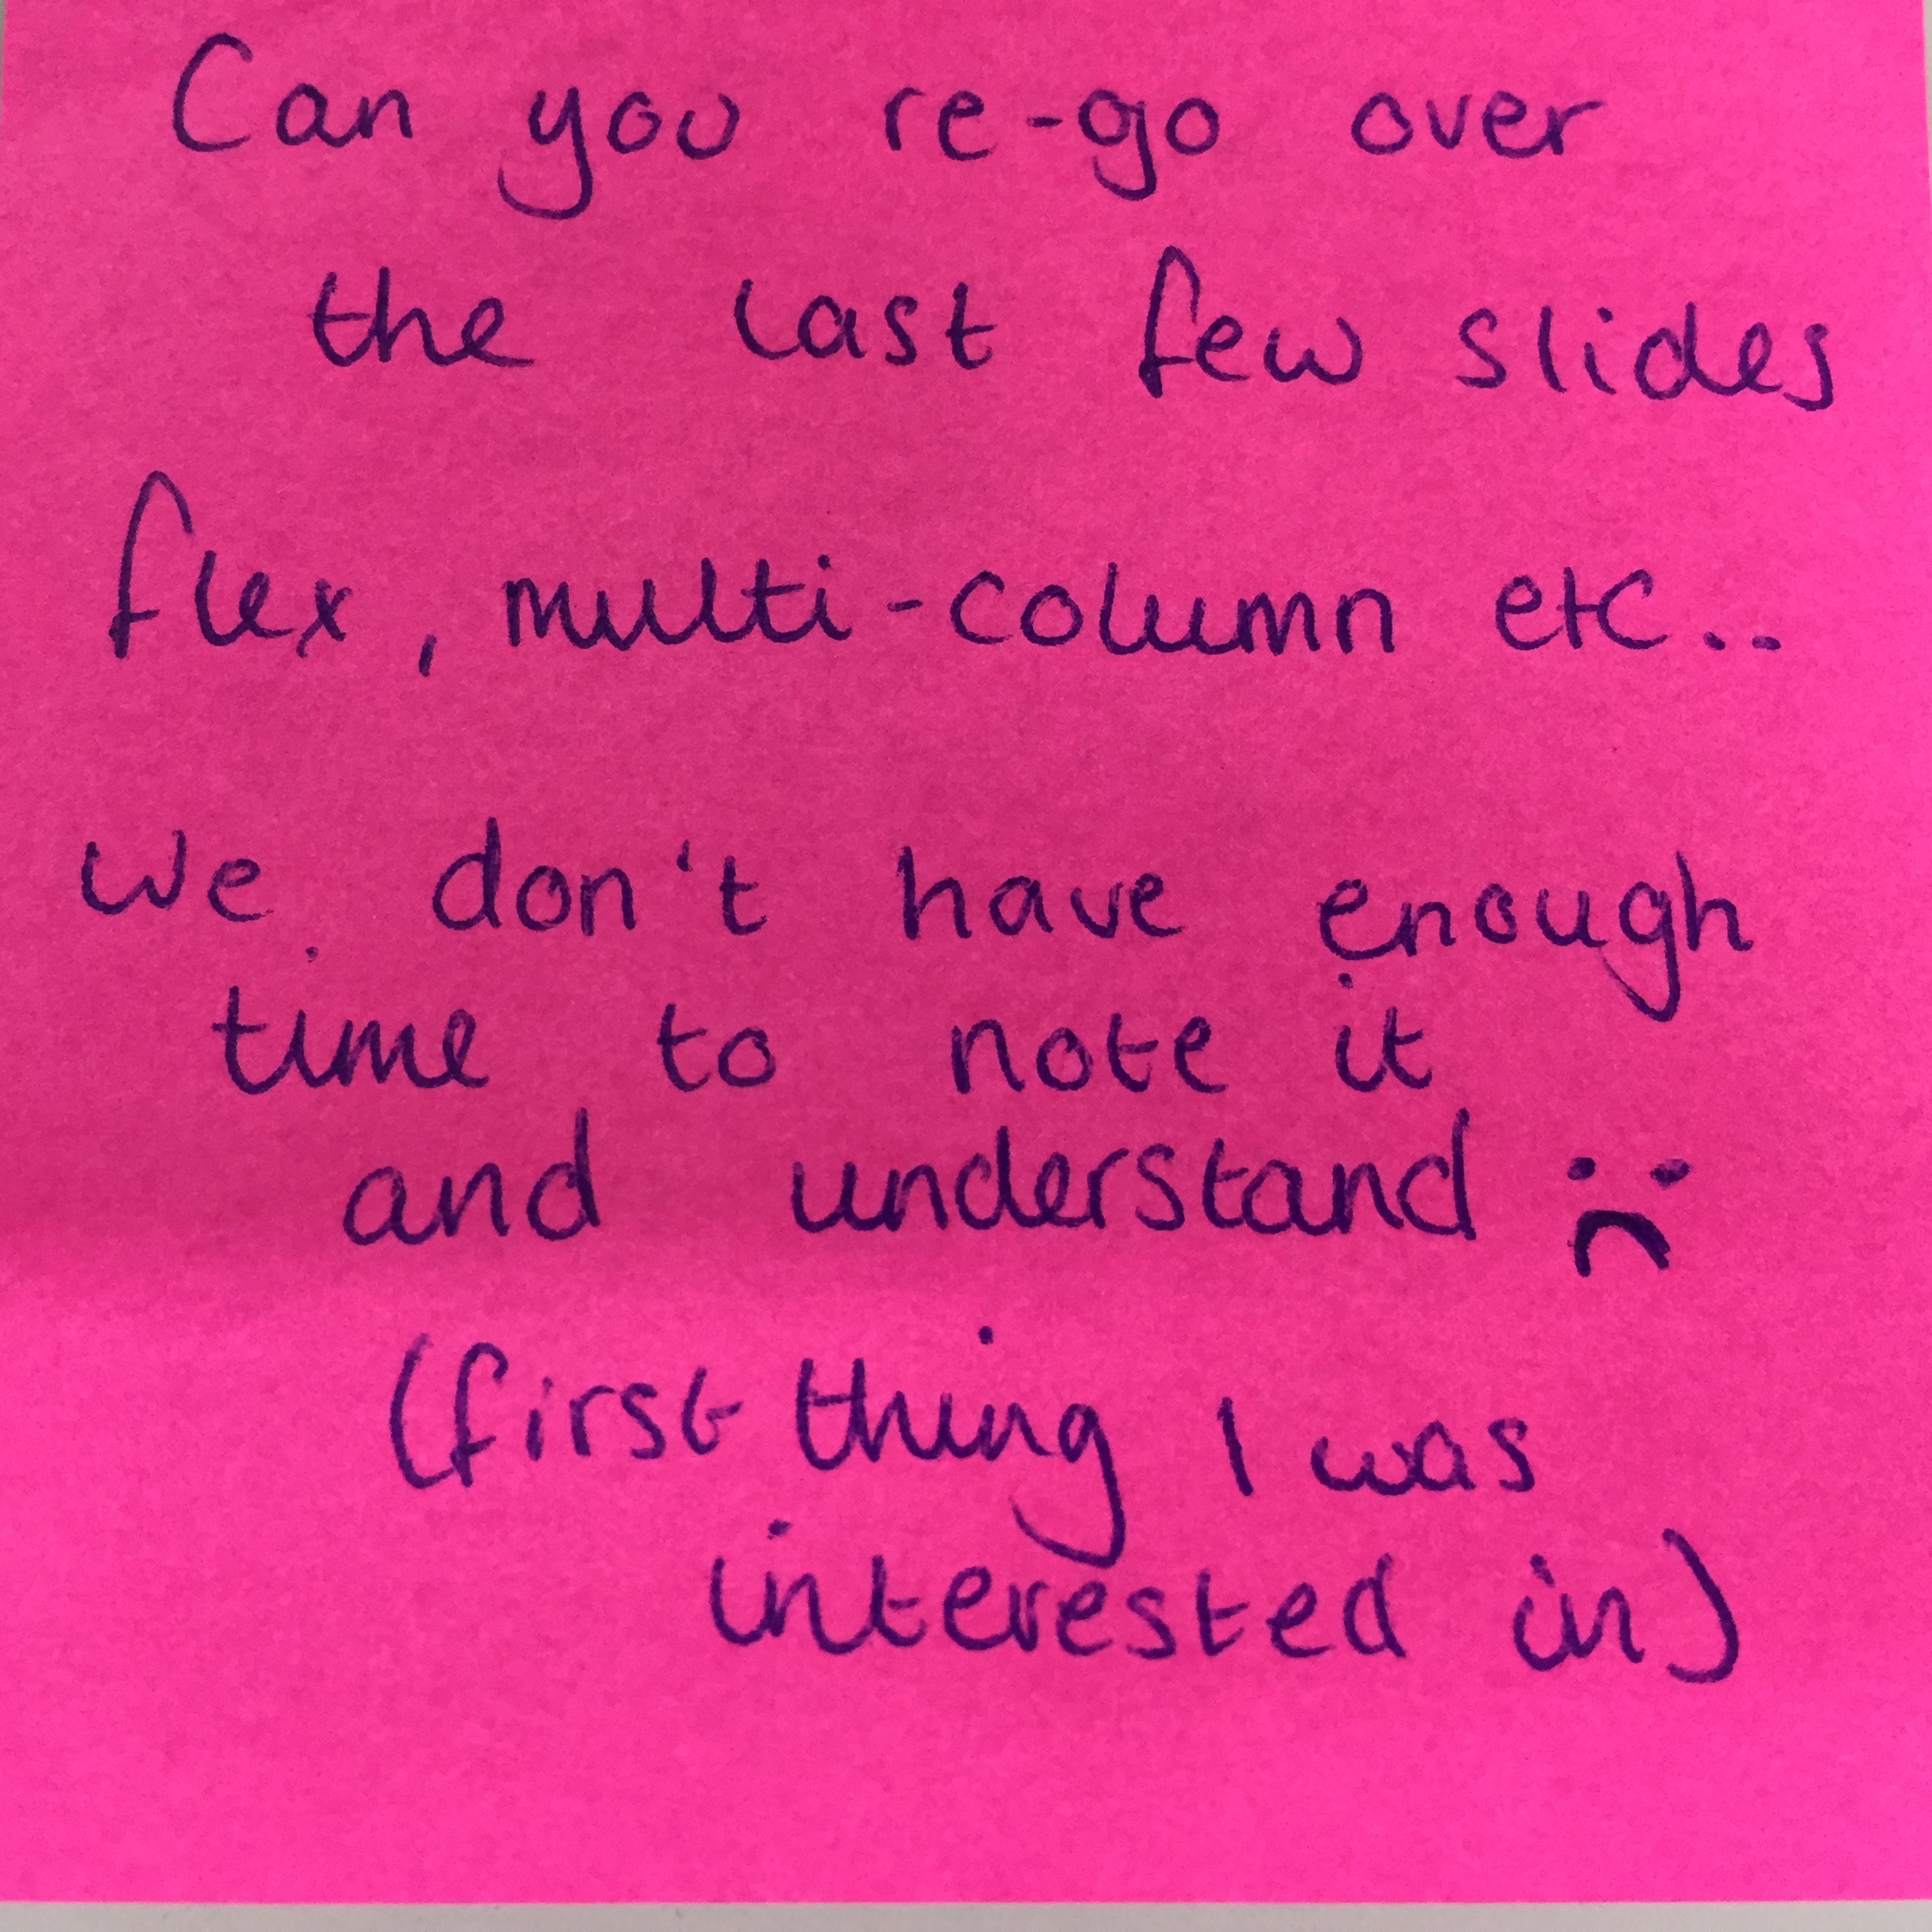 Can you re-go over
the last few slides
flex, multi-column etc..
We don't have enough
time to note it
and understand :(
(first thing I was
interested in)